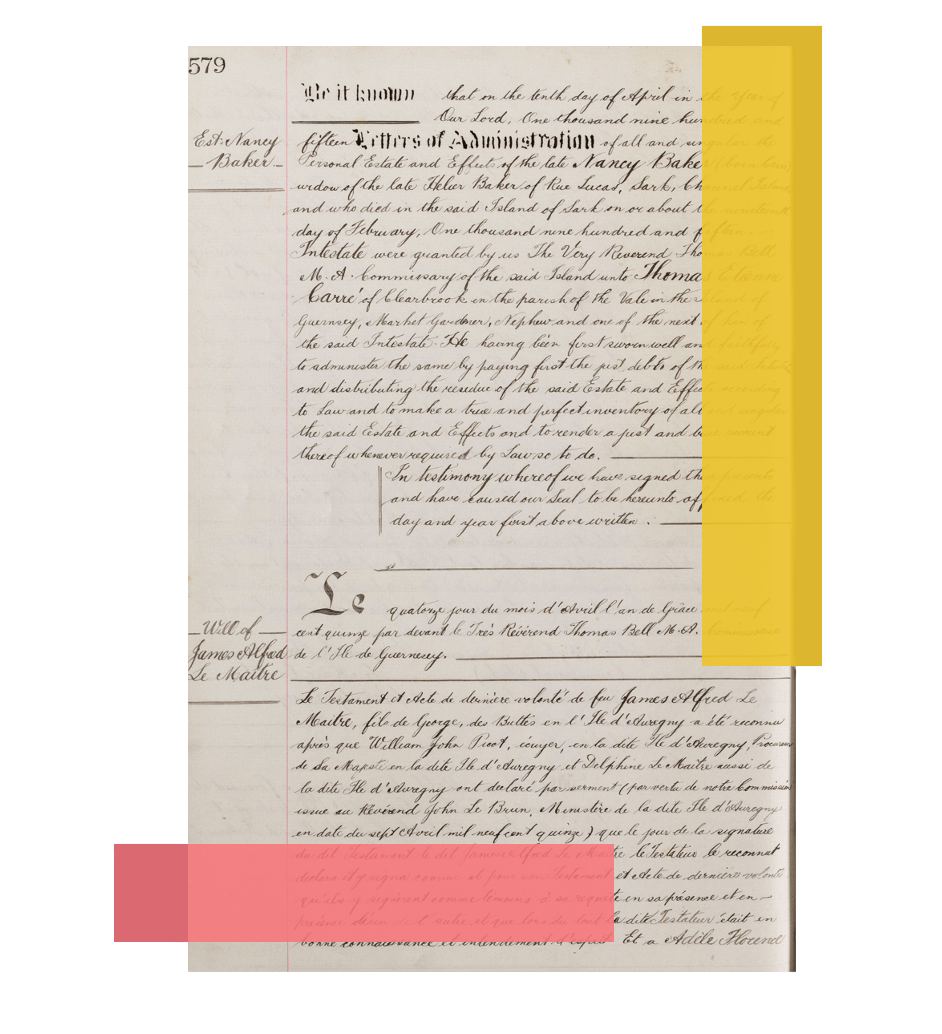 579
Est. Nancy
Baker
Be it known that on the tenth day of April in the Year of
Our Lord, One thousand nine hundred and
fifteen Letters of Administration of all and singular the
Personal Estate and Effects of the late Nancy Baker
widow of the late Helier Baker of Rue Lucas, Sark, Channel Islands
and who died in the said Island of Sark on or about the nineteenth
day of February, One thousand nine hundred and fifteen
Intestate were granted by us The Very Reverend Thomas Bell
M. A. Commissary of the said Island unto Thomas Etienne
Carré of Clearbrook in the parish of the Vale in the Island of
Guernsey, Market Gardner, Nephew and one of the next of kin of
the said Intestate. He having been first sworn well and faithfully
to administer the same by paying first the just debts of the said
and distributing the residue of the said Estate and Effects according
to Law and to make a true and perfect inventory of all and singular
the said Estate and Effects and to render a just and
thereof whenever required by Law so to do.
In testimony whereof we have signed these presents
and have caused our Seal to be hereunto affixed the
day and year first above written.
Will of
James Alfred
Le Maitre
Le quatorze jour du mois d'Avril l'an de Grâce mil neuf
cent quinze par devant le Très Révérend Thomas Bell M.A. Commissaire
de l'Ile de Guernesey.
Le Testament et Acte de dernière volonté de feu James Alfred Le
Maitre, fils de George, des Buttes en l'Ile d'Auregny a été reconnu
après que William John Picot, écuyer, en la dite Ile d'Auregny, Procureur
de Sa Majesté en la dite Ile d'Auregny et Delphine Le Maitre aussi de
la dite Ile d'Auregny ont déclaré par serment (par vertu de notre Commission
issue au Révérend John Le Brun, Ministère de la dite Ile d'Auregny
en date du sept Avril mil neuf cent quinze) que le jour de la signature
du dit Testament le dit James Alfred Le Maitre le Testateur le reconnut
déclara et y signa comme et pour son Testament et Acte de dernière volonté
qu'ils y signèrent comme témoins à sa requête en sa présence et en
présence l'un de l'autre et que lors du tout la dite Testateur était en
bonne connaissance et entendement d'esprit Et a Adèle Florence